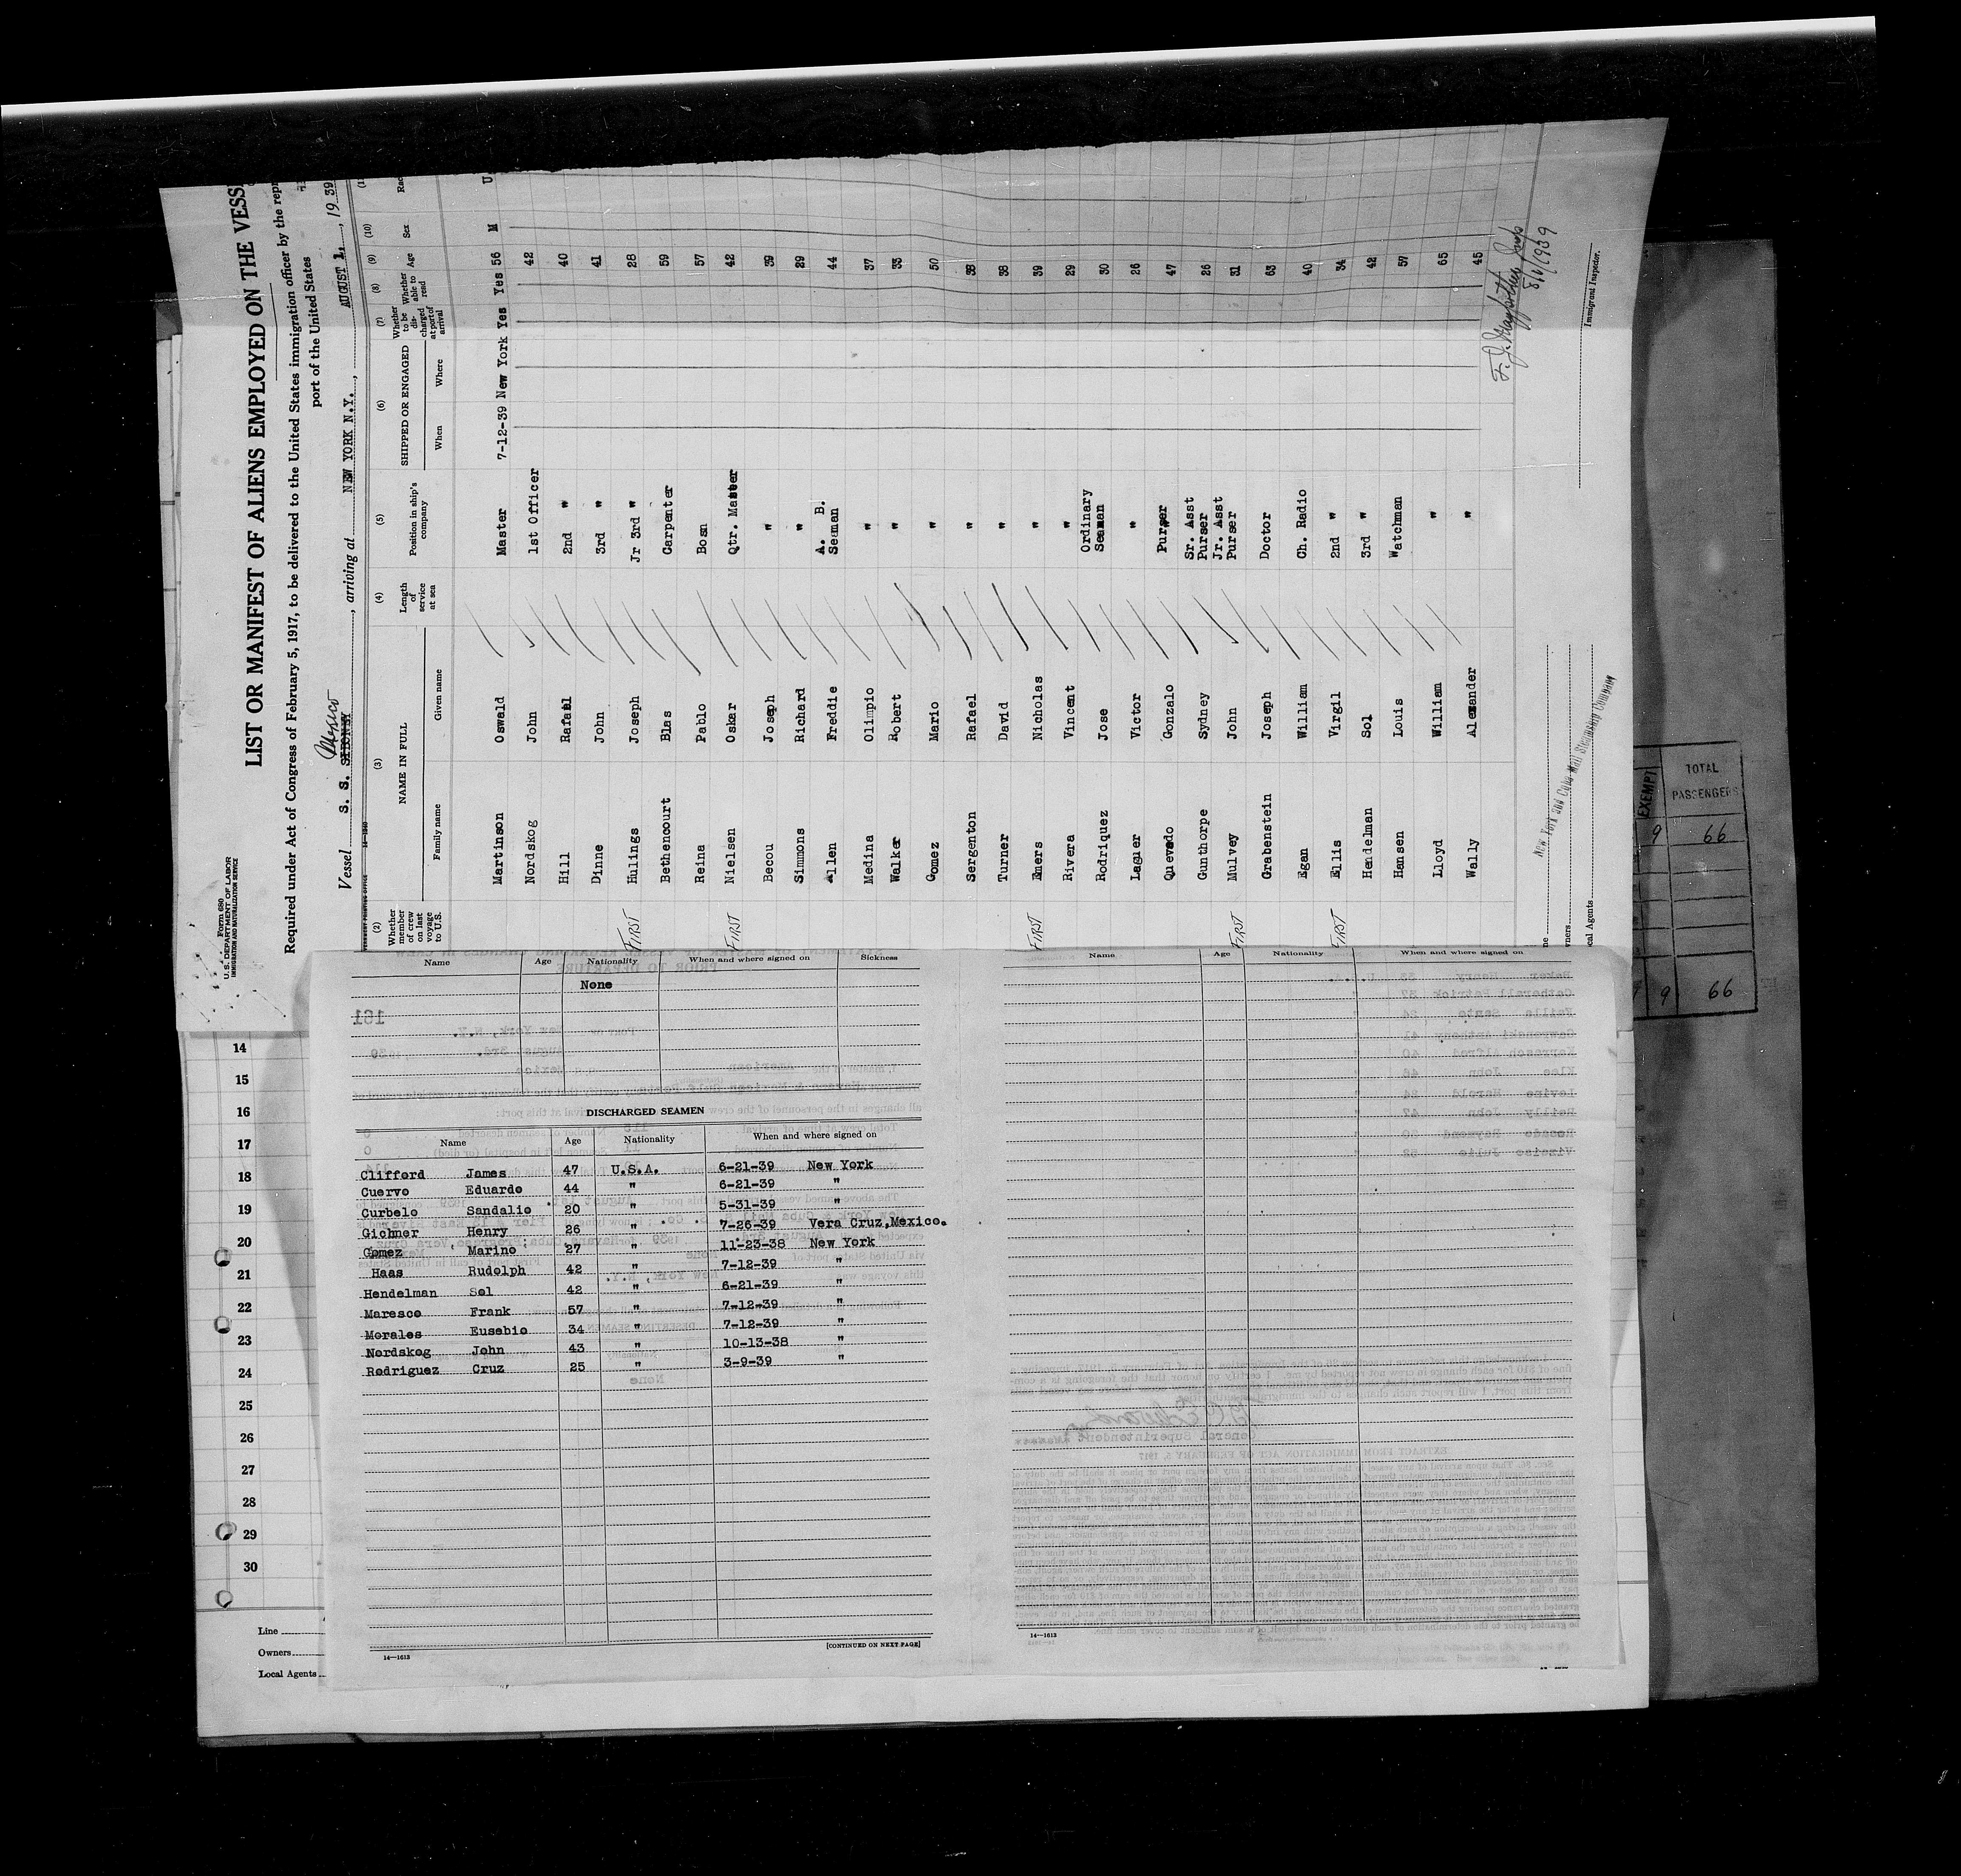 Form 680
U. S. DEPARTMENT OF LABOR
IMMIGRATION AND NATURALIZATION SERVICE
LIST OR MANIFEST OF ALIENS EMPLOYED ON THE VESS
Required under Act of Congress of February 5, 1917, to be delivered to the United States immigration officer by the repr
port of the United States
Mexico
Vessel S. S. SIBONEY, arriving at NEW YORK N.Y., AUGUST 1, 1939
(2) (3) (4) (5) (6) (7) (8) (9) (10)
Whether member of crew on last voyage to U.S. NAME IN FULL Length of service at sea Position in ship's company SHIPPED OR ENGAGED Whether to be discharged at port of arrival Whether able to read Age Sex Rac
Family name Given name When Where
Martinson Oswald Master 7-12-39 New York Yes Yes 56 M U
Nordskog John 1st Officer 42
Hill Rafael 2nd " 40
Dinne John 3rd " 41
FIRST Hulings Joseph Jr 3rd " 28
Bethencourt Blas Carpenter 59
Reina Pablo Bosn 57
FIRST Nielsen Oskar Qtr. Master 42
Becou Joseph " 39
Simmons Richard " 29
Allen Freddie A. B. Seaman 44
Medina Olimpio " 37
Walker Robert " 33
Gomez Mario " 50
Sergenton Rafael " 35
Turner David " 38
FIRST Emers Nicholas " 39
Rivera Vincent " 29
Rodriquez Jose Ordinary Seaman 30
Laguer Victor " 26
Quevado Gonzalo Purser 47
Gunthorpe Sydney Sr. Asst Purser 26
FIRST Mulvey John Jr. Asst Purser 31
Grabenstein Joseph Doctor 63
Egan William Ch. Radio 40
FIRST Ellis Virgil 2nd " 34
Hendelman Sol 3rd " 42
Hansen Louis Watchman 57
Lloyd William " 65
Wally Alexander " 45
8/1/1939
Immigrant Inspector.
New York and Cuba Mail Steamship Company
ne
wners
cal Agents
EXEMPT TOTAL PASSENGERS
9 66
9 66
Name Age Nationality When and where signed on Sickness
None
DISCHARGED SEAMEN
Name Age Nationality When and where signed on
Clifford James 47 U.S.A. 6-21-39 New York
Cuervo Eduardo 44 " 6-21-39 "
Curbelo Sandalio 20 " 5-31-39 "
Gichner Henry 26 " 7-26-39 Vera Cruz,Mexico.
Gomez Marino 27 " 11-23-38 New York
Haas Rudolph 42 " 7-12-39 "
Hendelman Sol 42 " 6-21-39 "
Maresco Frank 57 " 7-12-39 "
Morales Eusebio 34 " 7-12-39 "
Nordskog John 43 " 10-13-38 "
Rodriguez Cruz 25 " 3-9-39 "
[CONTINUED ON NEXT PAGE]
14—1613
Name Age Nationality When and where signed on
14—1613
14
15
16
17
18
19
20
21
22
23
24
25
26
27
28
29
30
Line
Owners
Local Agents